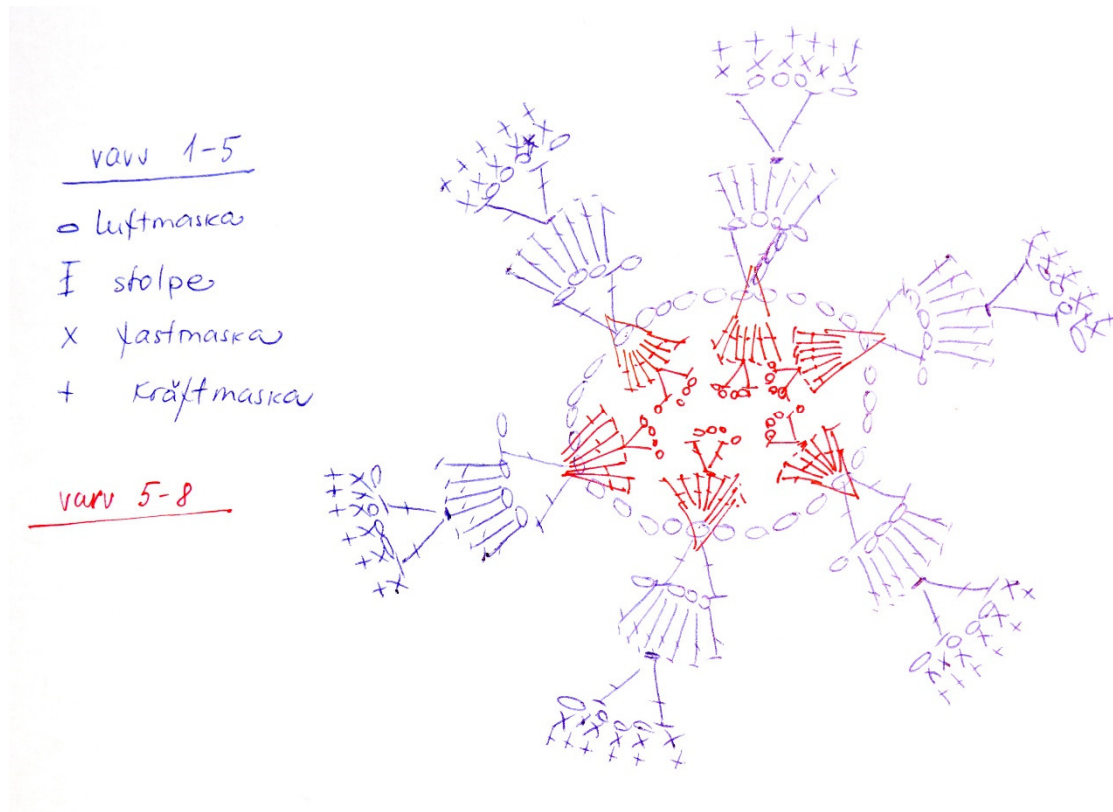 varv 1-5
luftmaska
stolpe
fastmaska
kräftmaska
varv 5-8